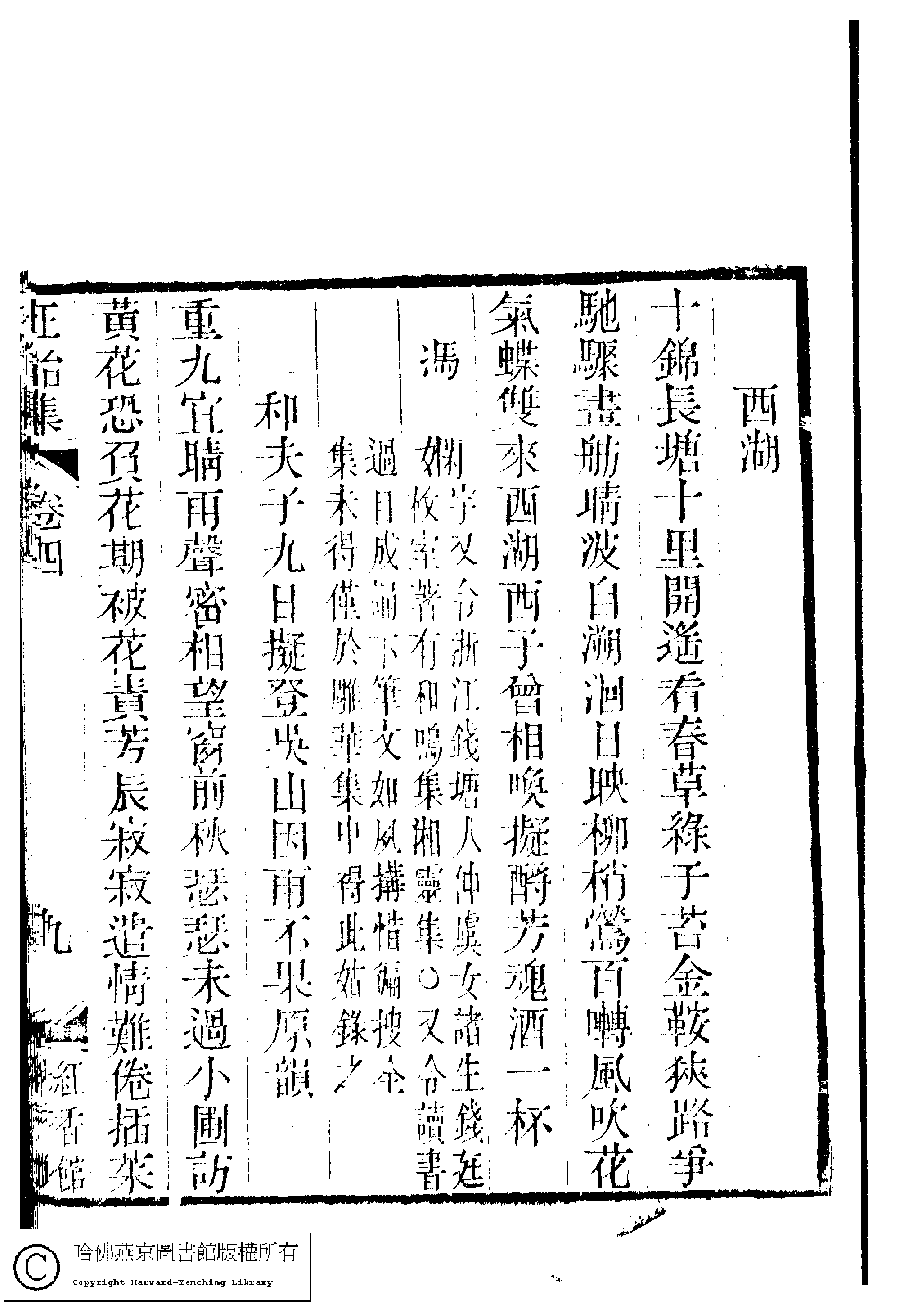 西湖
十錦長塘十里開遙看春草綠子苔金鞍狹路爭
馳驟晝舫晴波自溯洄日映柳梢鶯百囀風吹花
氣蝶雙來西湖西子曾相喚擬酹芳魂酒一杯
馮嫻
字又令浙江錢塘人仲虞女諸生錢廷
枚室著有和鳴集湘靈集○又令讀書
過目成誦下筆文如夙搆惜徧搜全
集未得僅於雕華集中得此姑錄之
和夫子九日擬登吳山因雨不果原韻
重九宜晴雨聲密相望窗前秋瑟瑟未過小圃訪
黃花恐負花期被花責芳辰寂寂遣情難倦插茱
正始集
卷四
九
紅香館
哈佛燕京圖書館版權所有
Copyright Harvard-Yenching Library